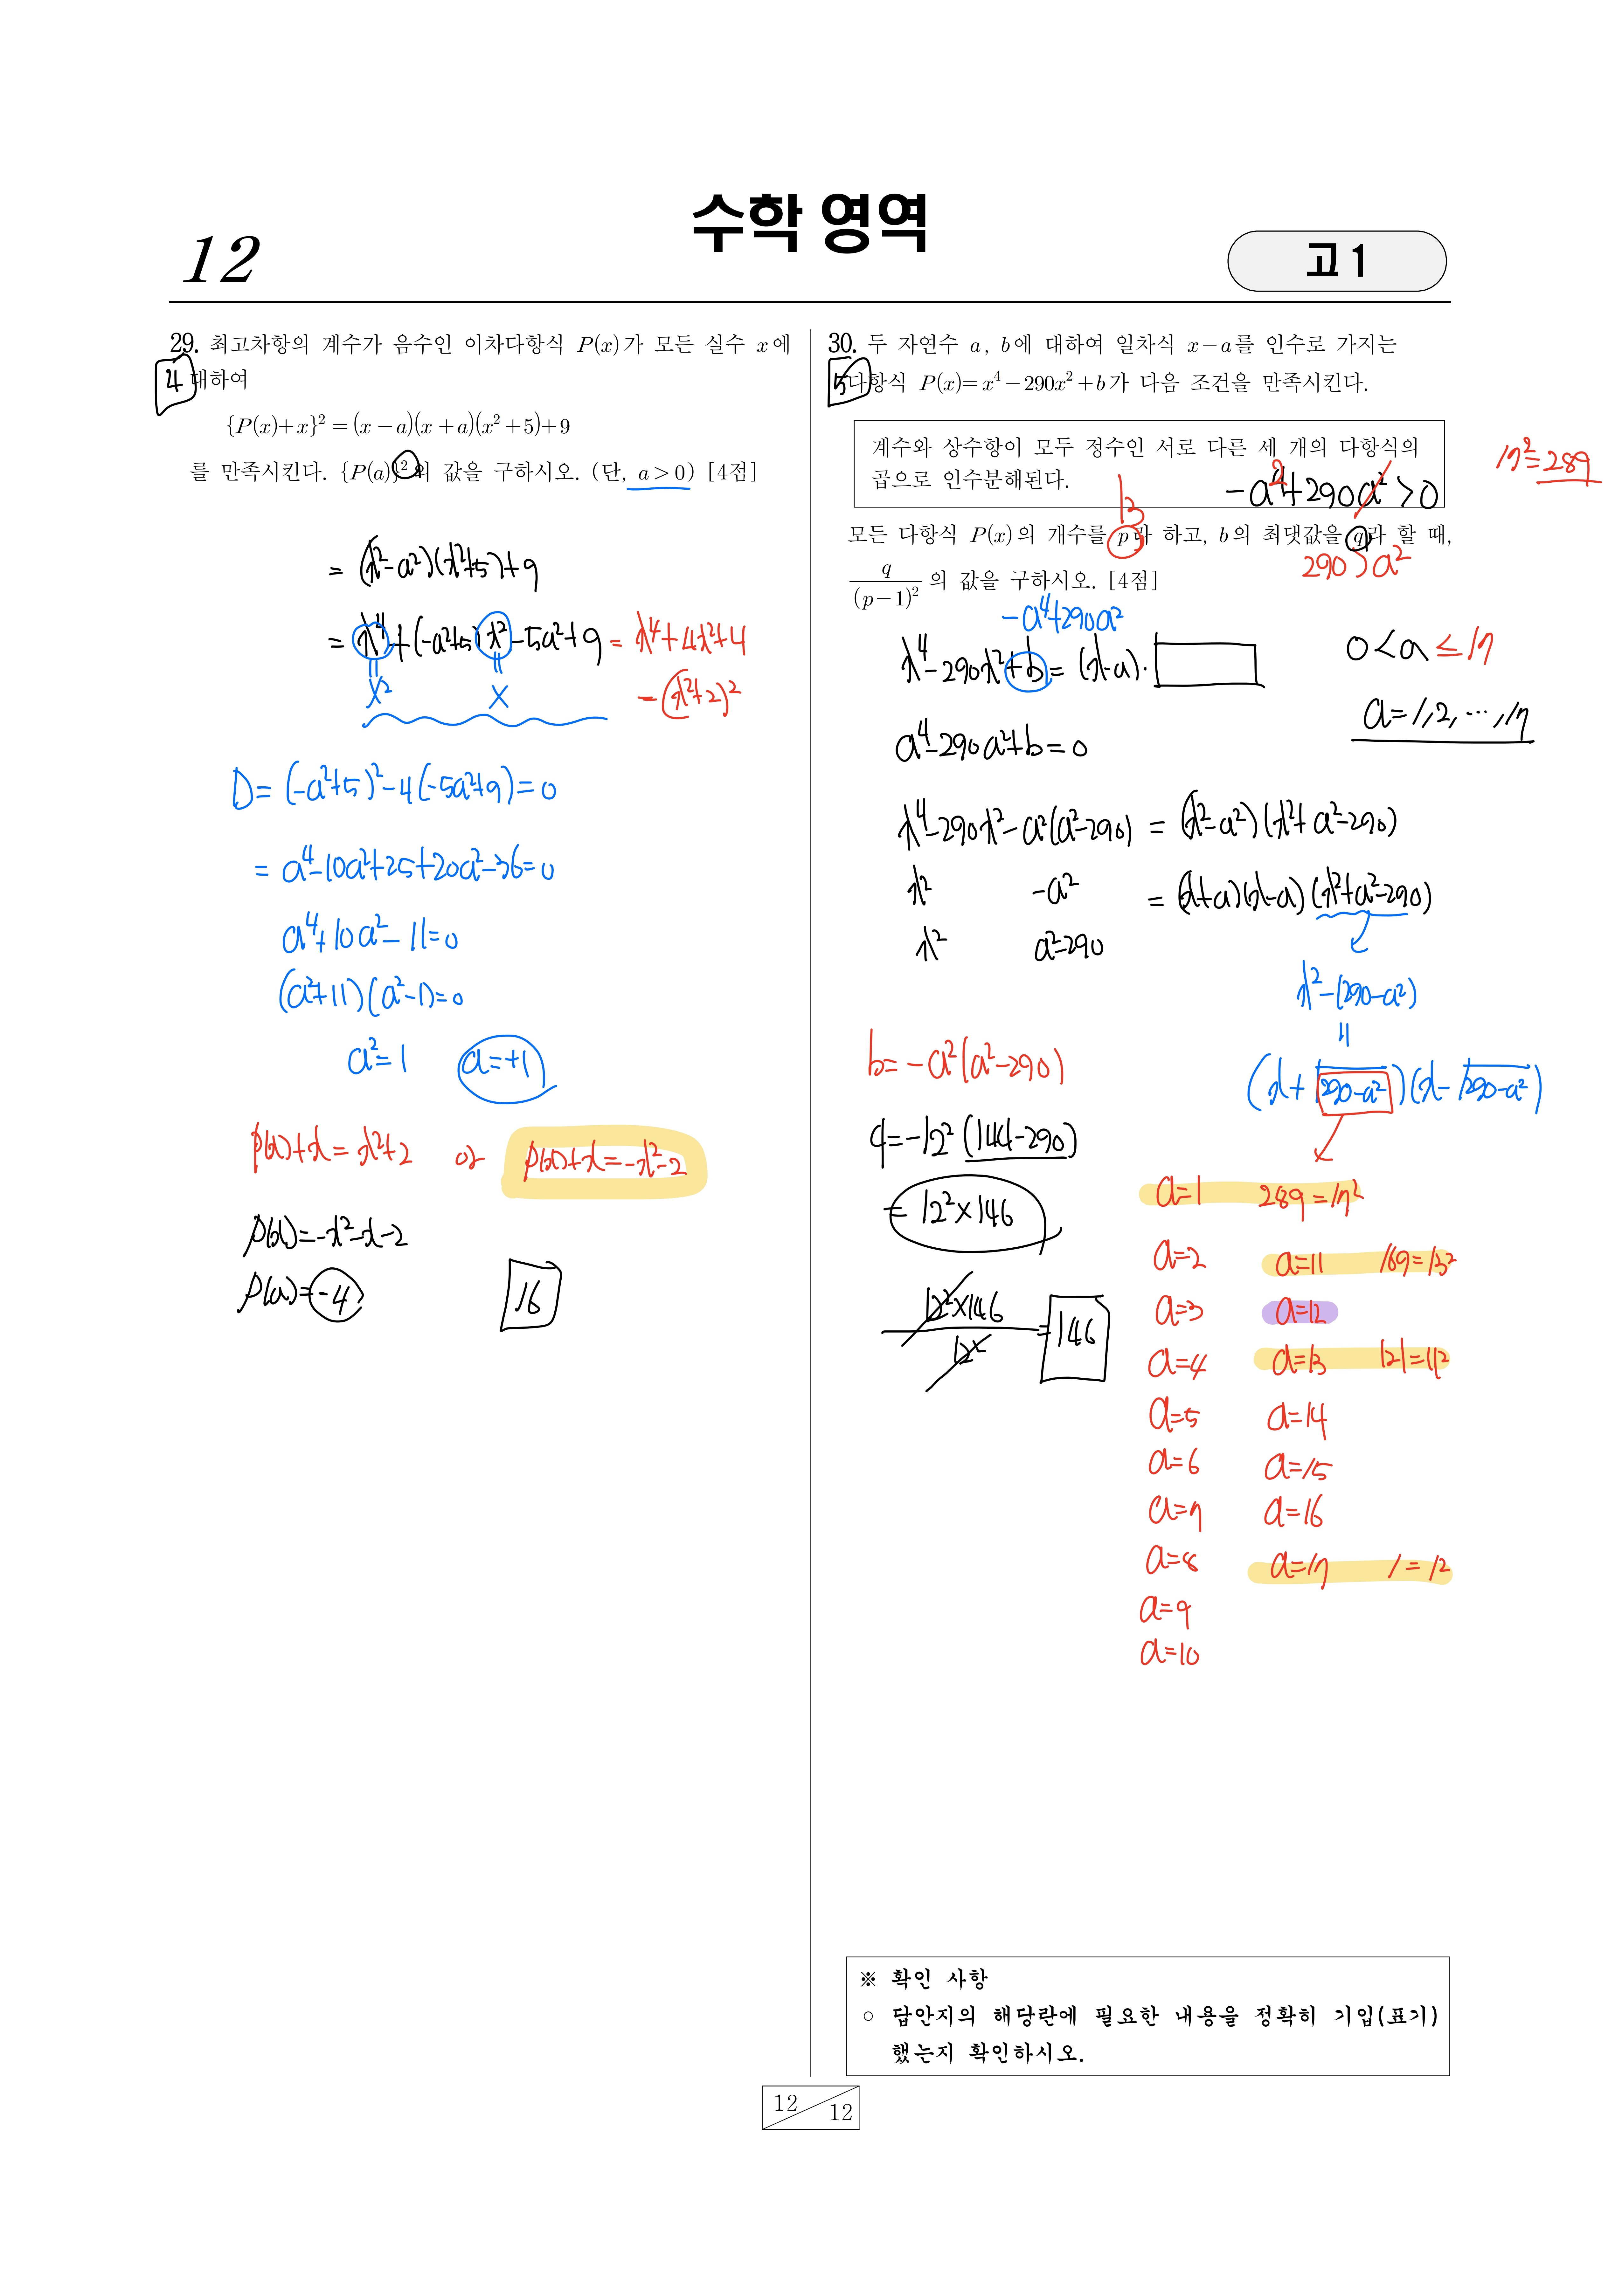 수학 영역
12
고 1
29. 최고차항의 계수가 음수인 이차다항식 P(x)가 모든 실수 x에
4
대하여
{P(x)+x}² = (x-a)(x+a)(x²+5)+9
를 만족시킨다. {P(a)}²의 값을 구하시오. (단, a>0) [4점]
= (x²-a²)(x²+5)+9
= x⁴+(-a²+5)x²-5a²+9 = x⁴+4x²+4
X² X
= (x²+2)²
D= (-a²+5)²-4(-5a²+9)=0
= a⁴-10a²+25+20a²-36=0
a⁴+10a²-11=0
(a²+11)(a²-1)=0
a²=1 a=+1
P(x)+x=x²+2 or P(x)+x=-x²-2
P(x)=-x²-x-2
P(a)=-4 16
30. 두 자연수 a, b에 대하여 일차식 x-a를 인수로 가지는
5
다항식 P(x)=x⁴-290x²+b가 다음 조건을 만족시킨다.
계수와 상수항이 모두 정수인 서로 다른 세 개의 다항식의
곱으로 인수분해된다.
17²=289
-a²+290a²>0
13
모든 다항식 P(x)의 개수를 p라 하고, b의 최댓값을 q라 할 때,
290>a²
q/(p-1)² 의 값을 구하시오. [4점]
-a⁴+290a²
x⁴-290x²+b=(x-a)·
0<a≤17
a=1,2,⋯,17
a⁴-290a²+b=0
x⁴-290x²-a²(a²-290) = (x²-a²)(x²+a²-290)
x² -a²
= (x+a)(x-a)(x²+a²-290)
x² a²-290
x²-(290-a²)
=
(x+√290-a²)(x-√290-a²)
b=-a²(a²-290)
q=-12²(144-290)
=12²×146
12²×146/12²=146
a=1 289=17²
a=2
a=3
a=4
a=5
a=6
a=7
a=8
a=9
a=10
a=11 169=13²
a=12
a=13 121=11²
a=14
a=15
a=16
a=17 1=1²
※ 확인 사항
○ 답안지의 해당란에 필요한 내용을 정확히 기입(표기)
했는지 확인하시오.
12
12